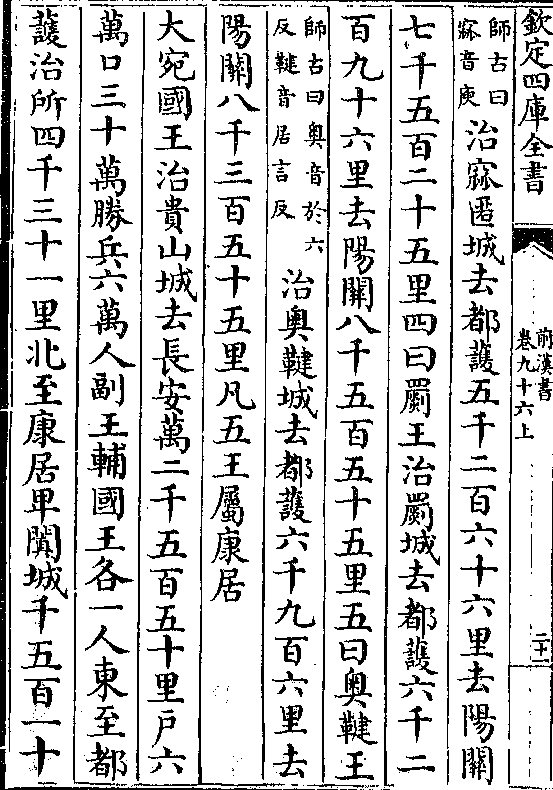 欽定四庫全書
前漢書
卷九十六上
二十二
師古曰
窳音庾
治窳匿城去都護五千二百六十六里去陽關
七千五百二十五里四曰罽王治罽城去都護六千二
百九十六里去陽關八千五百五十五里五曰奥鞬王
師古曰奥音於六
反鞬音居言反
治奥鞬城去都護六千九百六里去
陽關八千三百五十五里凡五王屬康居
大宛國王治貴山城去長安萬二千五百五十里戸六
萬口三十萬勝兵六萬人副王輔國王各一人東至都
護治所四千三十一里北至康居卑闐城千五百一十